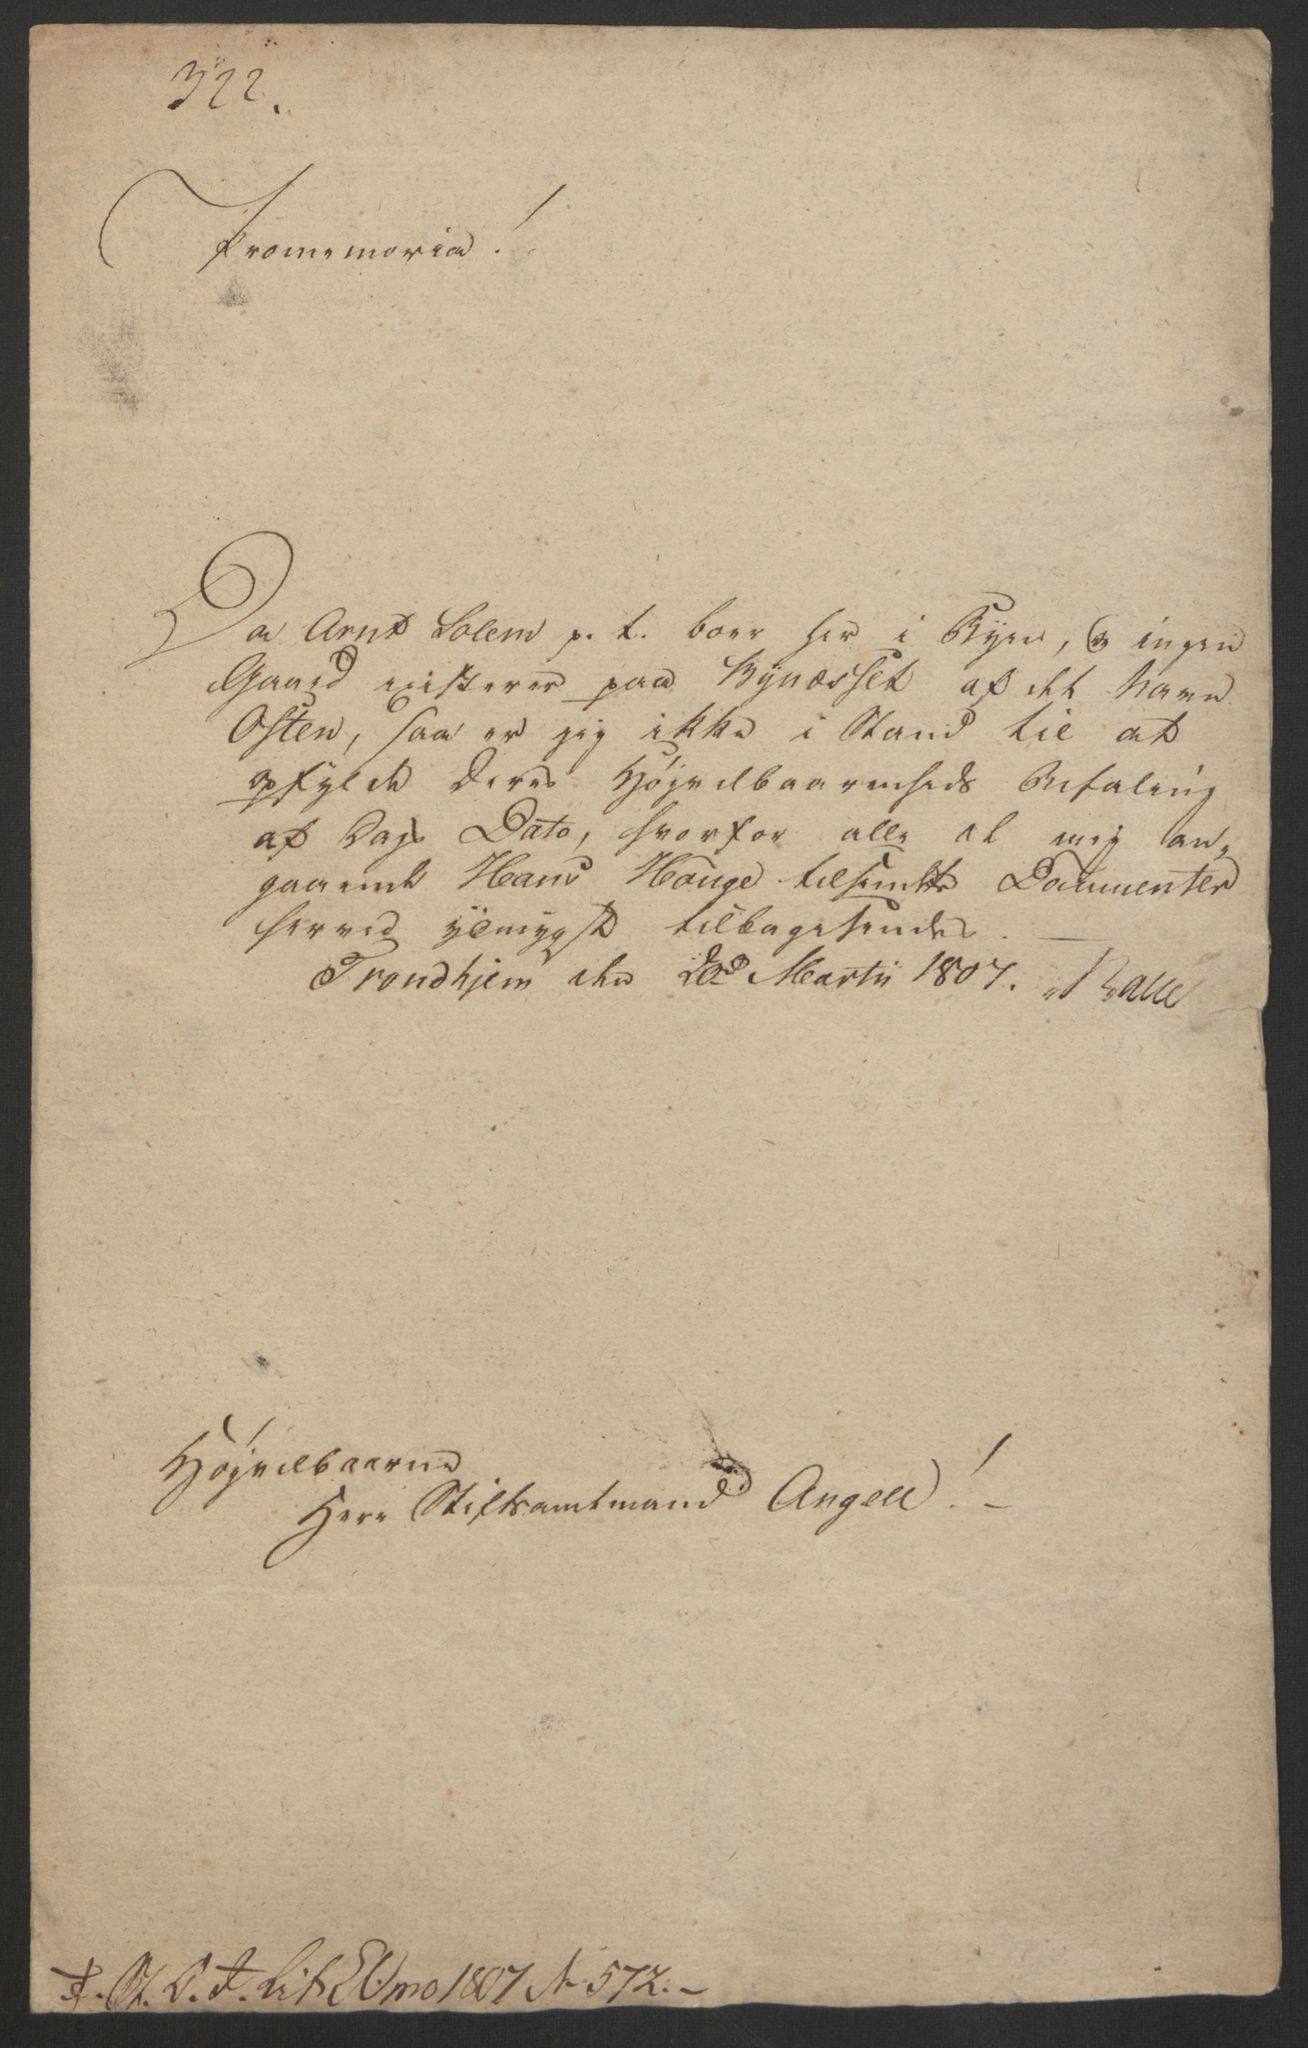 322.
Promemoria!
Da Arnt Solem p. t. boer her i Byen, og ingen
Gaard existerer paa Bynæsset af det Navn
Osten, saa er jeg ikke i Stand til at
opfylde Deres Højvelbaarenheds Befaling
af Dags Dato, hvorfor alle de mig an-
gaaende Hans Houge tilsendte Documenter
herved ydmygst tilbagesendes.
Trondhjem den Martii 1807.
Højvelbaarne
Herr Stiftsamtmand Angell! -
St. C. T. Lit. 1807 No 572. -